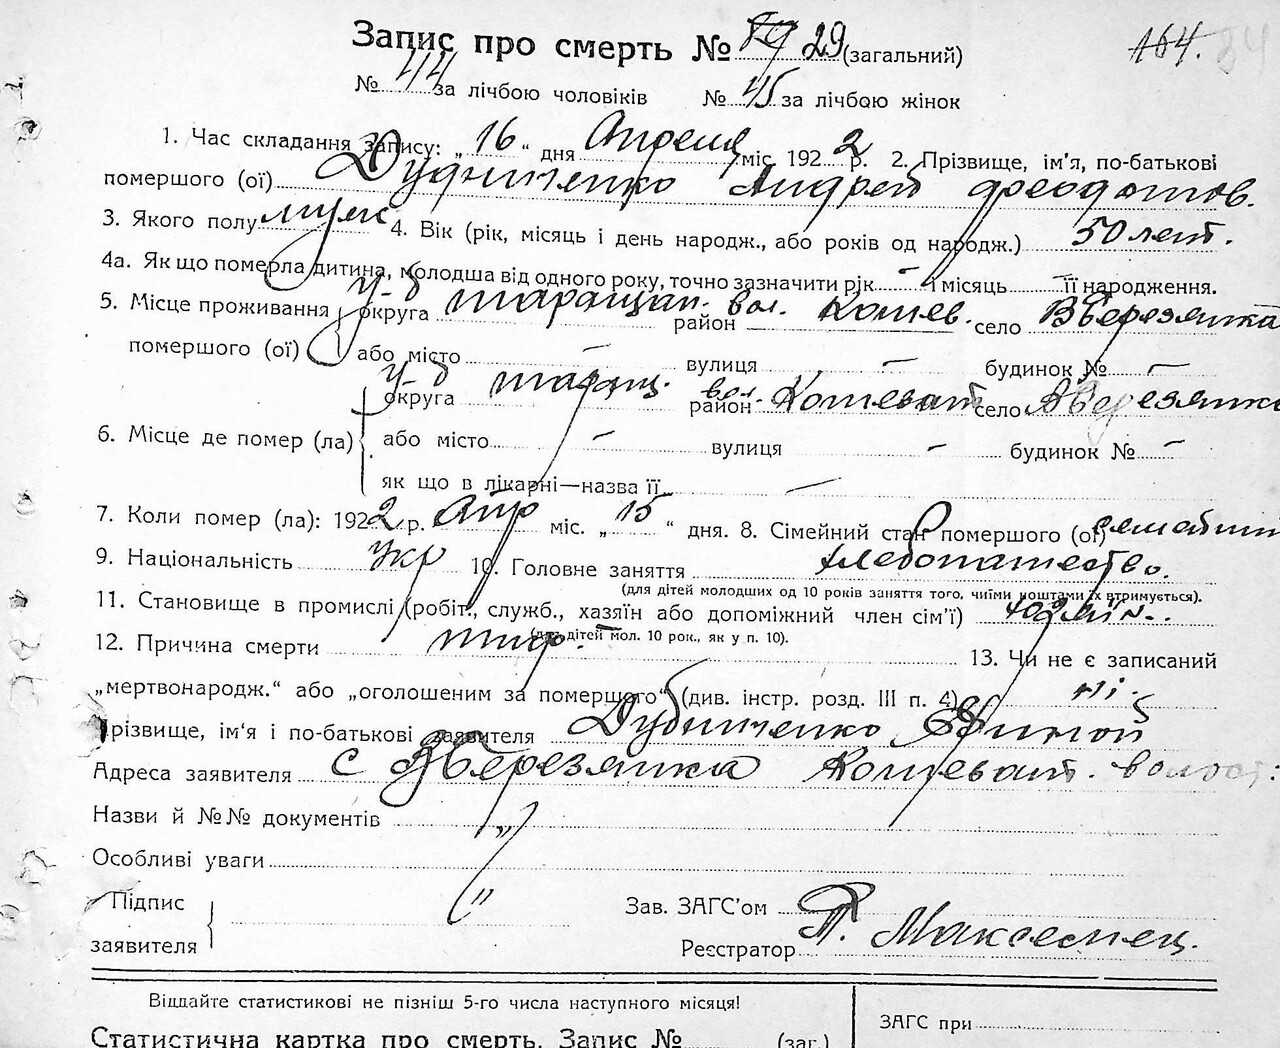 Запис про смерть № 89 29 (загальний)
164. 84
№ 44 за лічбою чоловіків № 45 за лічбою жінок
1. Час складання запису: „ 16 “ дня Апреля міс. 192 2 р. 2. Прізвище, ім'я, по-батькові
помершого (ої) Дудниченко Андрей Феодотов.
3. Якого полу муж 4. Вік (рік, місяць і день народж., або років од народж.) 50 лет.
4а. Як що померла дитина, молодша від одного року, точно зазначити рік - і місяць її народження.
5. Місце проживання у-д округа таращан. вол. район Кошев. село ВБерезянка
помершого (ої) або місто - вулиця - будинок № -
у-д округа таращ. вол. район Кошеват село ВБерезянка
6. Місце де помер (ла) або місто - вулиця - будинок № -
як що в лікарні—назва її —
7. Коли помер (ла): 192 2 р. Апр міс. „ 15 “ дня. 8. Сімейний стан помершого (ої)
9. Національність Укр 10. Головне заняття хлебопашество.
(для дітей молодших од 10 років заняття того, чиїми коштами їх втримується).
11. Становище в промислі (робіт., служб., хазяїн або допоміжний член сім'ї)
(для дітей мол. 10 рок., як у п. 10).
12. Причина смерти тиф. 13. Чи не є записаний
„мертвонародж.“ або „оголошеним за помершого“ (див. інстр. розд. III п. 4) ні.
Прізвище, ім'я і по-батькові заявителя Дубниченко
Адреса заявителя с ВБерезянка Кошеват. волост:
Назви й №№ документів "
Особливі уваги
Підпис " Зав. ЗАГС'ом
заявителя Реєстратор П. Максемец.
Віддайте статистикові не пізніш 5-го числа наступного місяця!
ЗАГС при
Статистична картка про смерть. Запис № (заг.)